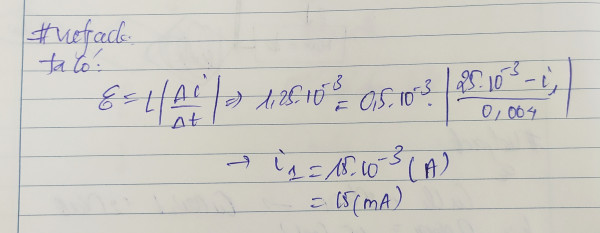 ta có:
ℰ = L|Δi/Δt| ⇒ 1,25.10⁻³ = 0,5.10⁻³.|25.10⁻³ - i₁/0,004|
→ i₁ = 15.10⁻³ (A)
= 15 (mA)